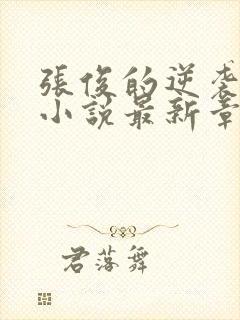 張俊的逆袭
小說最新章
君落舞